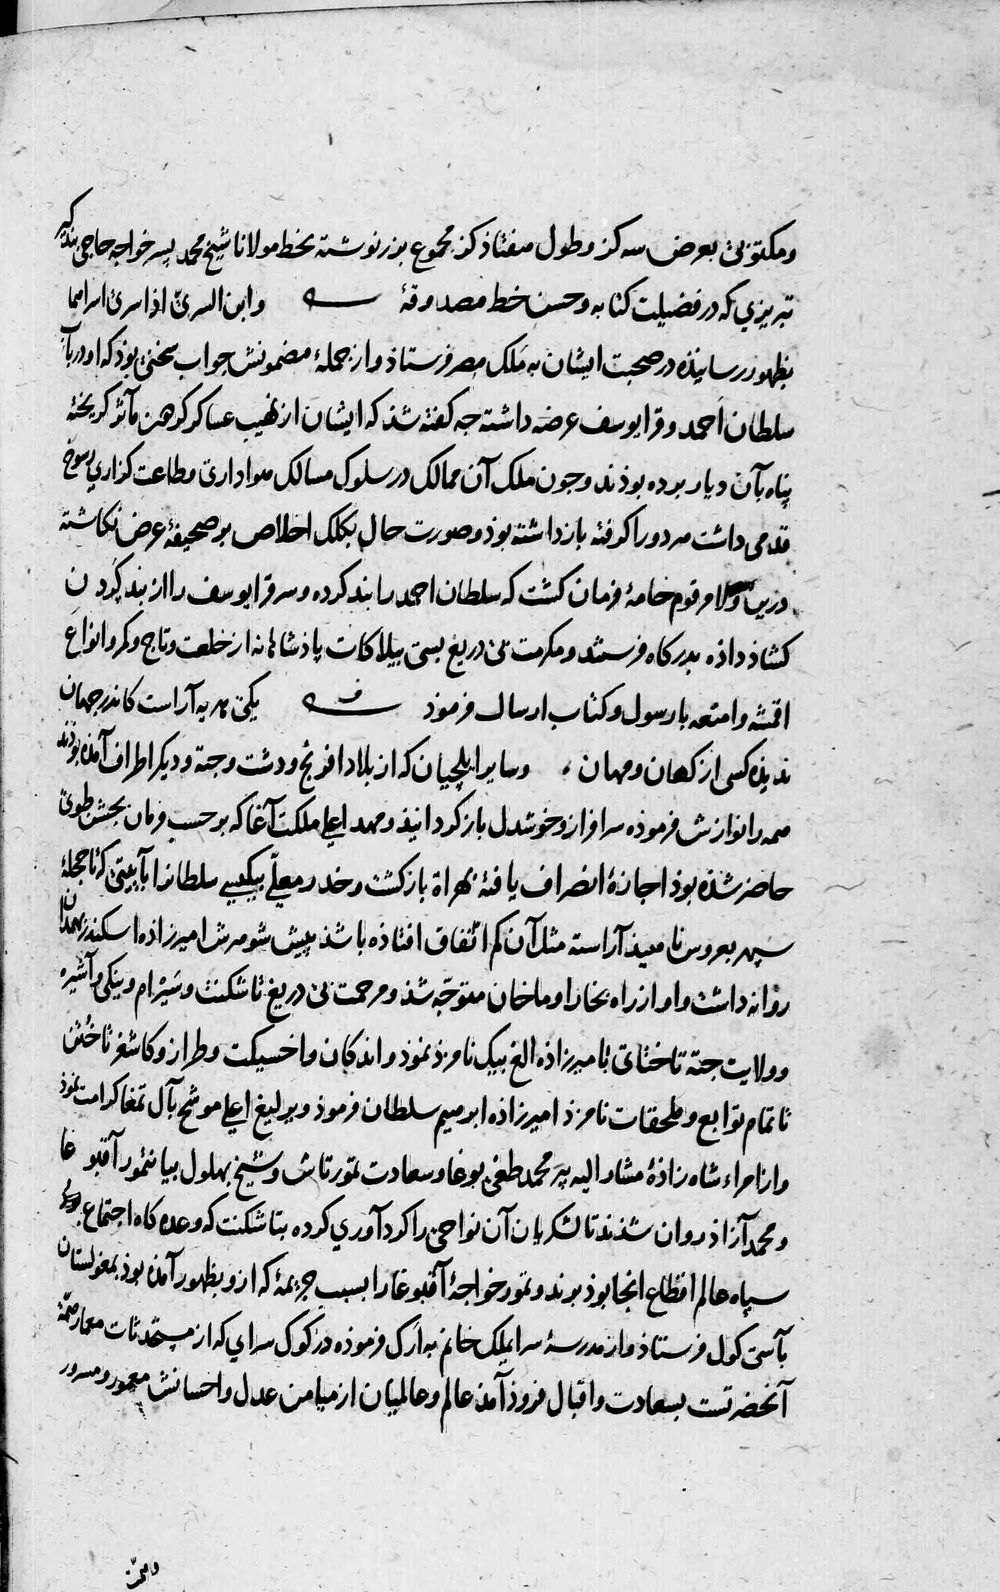 و مکتوبی بعرض سه کز و طول هفتاذ کز مجموع بزر نوشته بخط مولانا شیخ محمد پسر خواجه حاجی بندکیر
تبریزی که در فضیلت کتابه و حسن خط مصدوقهٔ وابن السریّ اذا سری اسراهما
بظهور رسانیذه در صحبت ایشان به مَلک مصر فرستاذ و از جملهٔ مضمونش جواب سخنی بوذ که او در باب
سلطان احمد و قرا یوسف عرضه داشته جه کفته شذ که ایشان از نهیب عساکر کردون مآثر کریخته
پناه بآن دیار برده بوذند و جون ملک آن ممالک در سلوک مسالک هواداری و طاعت کزاری رسوخ
قدمی داشت هر دو را کرفته بازداشته بوذ و صورت حال بکلک اخلاص بر صحیفهٔ عرض نکاشته
درین ولا مرقوم خامهٔ فرمان کشت که سلطان احمد را بند کرده و سر قرا یوسف را از بند کردن
کشاذ داذه بدرکاه فرستد و مکرمت بی دریغ بسی بیلاکات پاذشاهانه از خلعت و تاج و کمر و انواع
اقمشه و امتعه با رسول و کتاب ارسال فرموذ یکی هدیه آراست کاندر جهان
ندیذه کسی از کهان و مهان ، و سایر ایلچیان که از بلاد افرنج و دشت و جته و دیکر اطراف آمذه بوذند
همه را نوازش فرموذه سرافراز و خوشدل باز کردانیذ و مهد اعلی ملکت آغا که بر حسب فرمان بجشن طوی
حاضر شذه بوذ اجازهٔ انصراف یافته بهراة بازکشت و خدر معلّی بیکیسی سلطانرا بآیینی که تا حجلهٔ
سپهر بعروس ناهیذ آراسته مثل آن کم اتفاق افتاذه باشذ پیش شوهرش امیرزاده اسکندر بهمدان
روانه داشت و او از راه بخارا و ماخان متوجّه شذ و مرحمت بی دریغ تاشکنت و سَیْرام و ینکی و آشپره
و ولایت جته تا ختای بامیرزاذه الغ بیک نامزذ نموذ و اندکان و اخسیکت و طراز و کاشغر تا خُتن
تا تمام توابع و ملحقات نامزذ امیرزاذه ابرهیم سلطان فرموذ و یرلیغ اعلی موشح بآل تمغا کرامت نموذ
و از امراء شاه زاذهٔ مشار الیه پیر محمد طغی بوغا و سعادت تمورتاش و شیخ بهلول بیانتمور آقبوغا
و محمد آزاذ روان شذند تا لشکریان آن نواحی را کردآوری کرده بتاشکنت که وعده کاه اجتماع بعضی
سپاه عالم اقطاع انجا بوذ بروند و تمور خواجهٔ آقبوغا را بسبب جریمهٔ که ازو بظهور آمذه بوذ بمغولستان
بآسی کول فرستاذ و از مدرسهٔ سرایملک خانم به ارک فرموذه در کوک سرای که از مستحدثات معمار همّت
آنحضرتست بسعادت و اقبال فروذ آمذ عالم و عالمیان از میامن عدل و احسانش معمور و مسرور